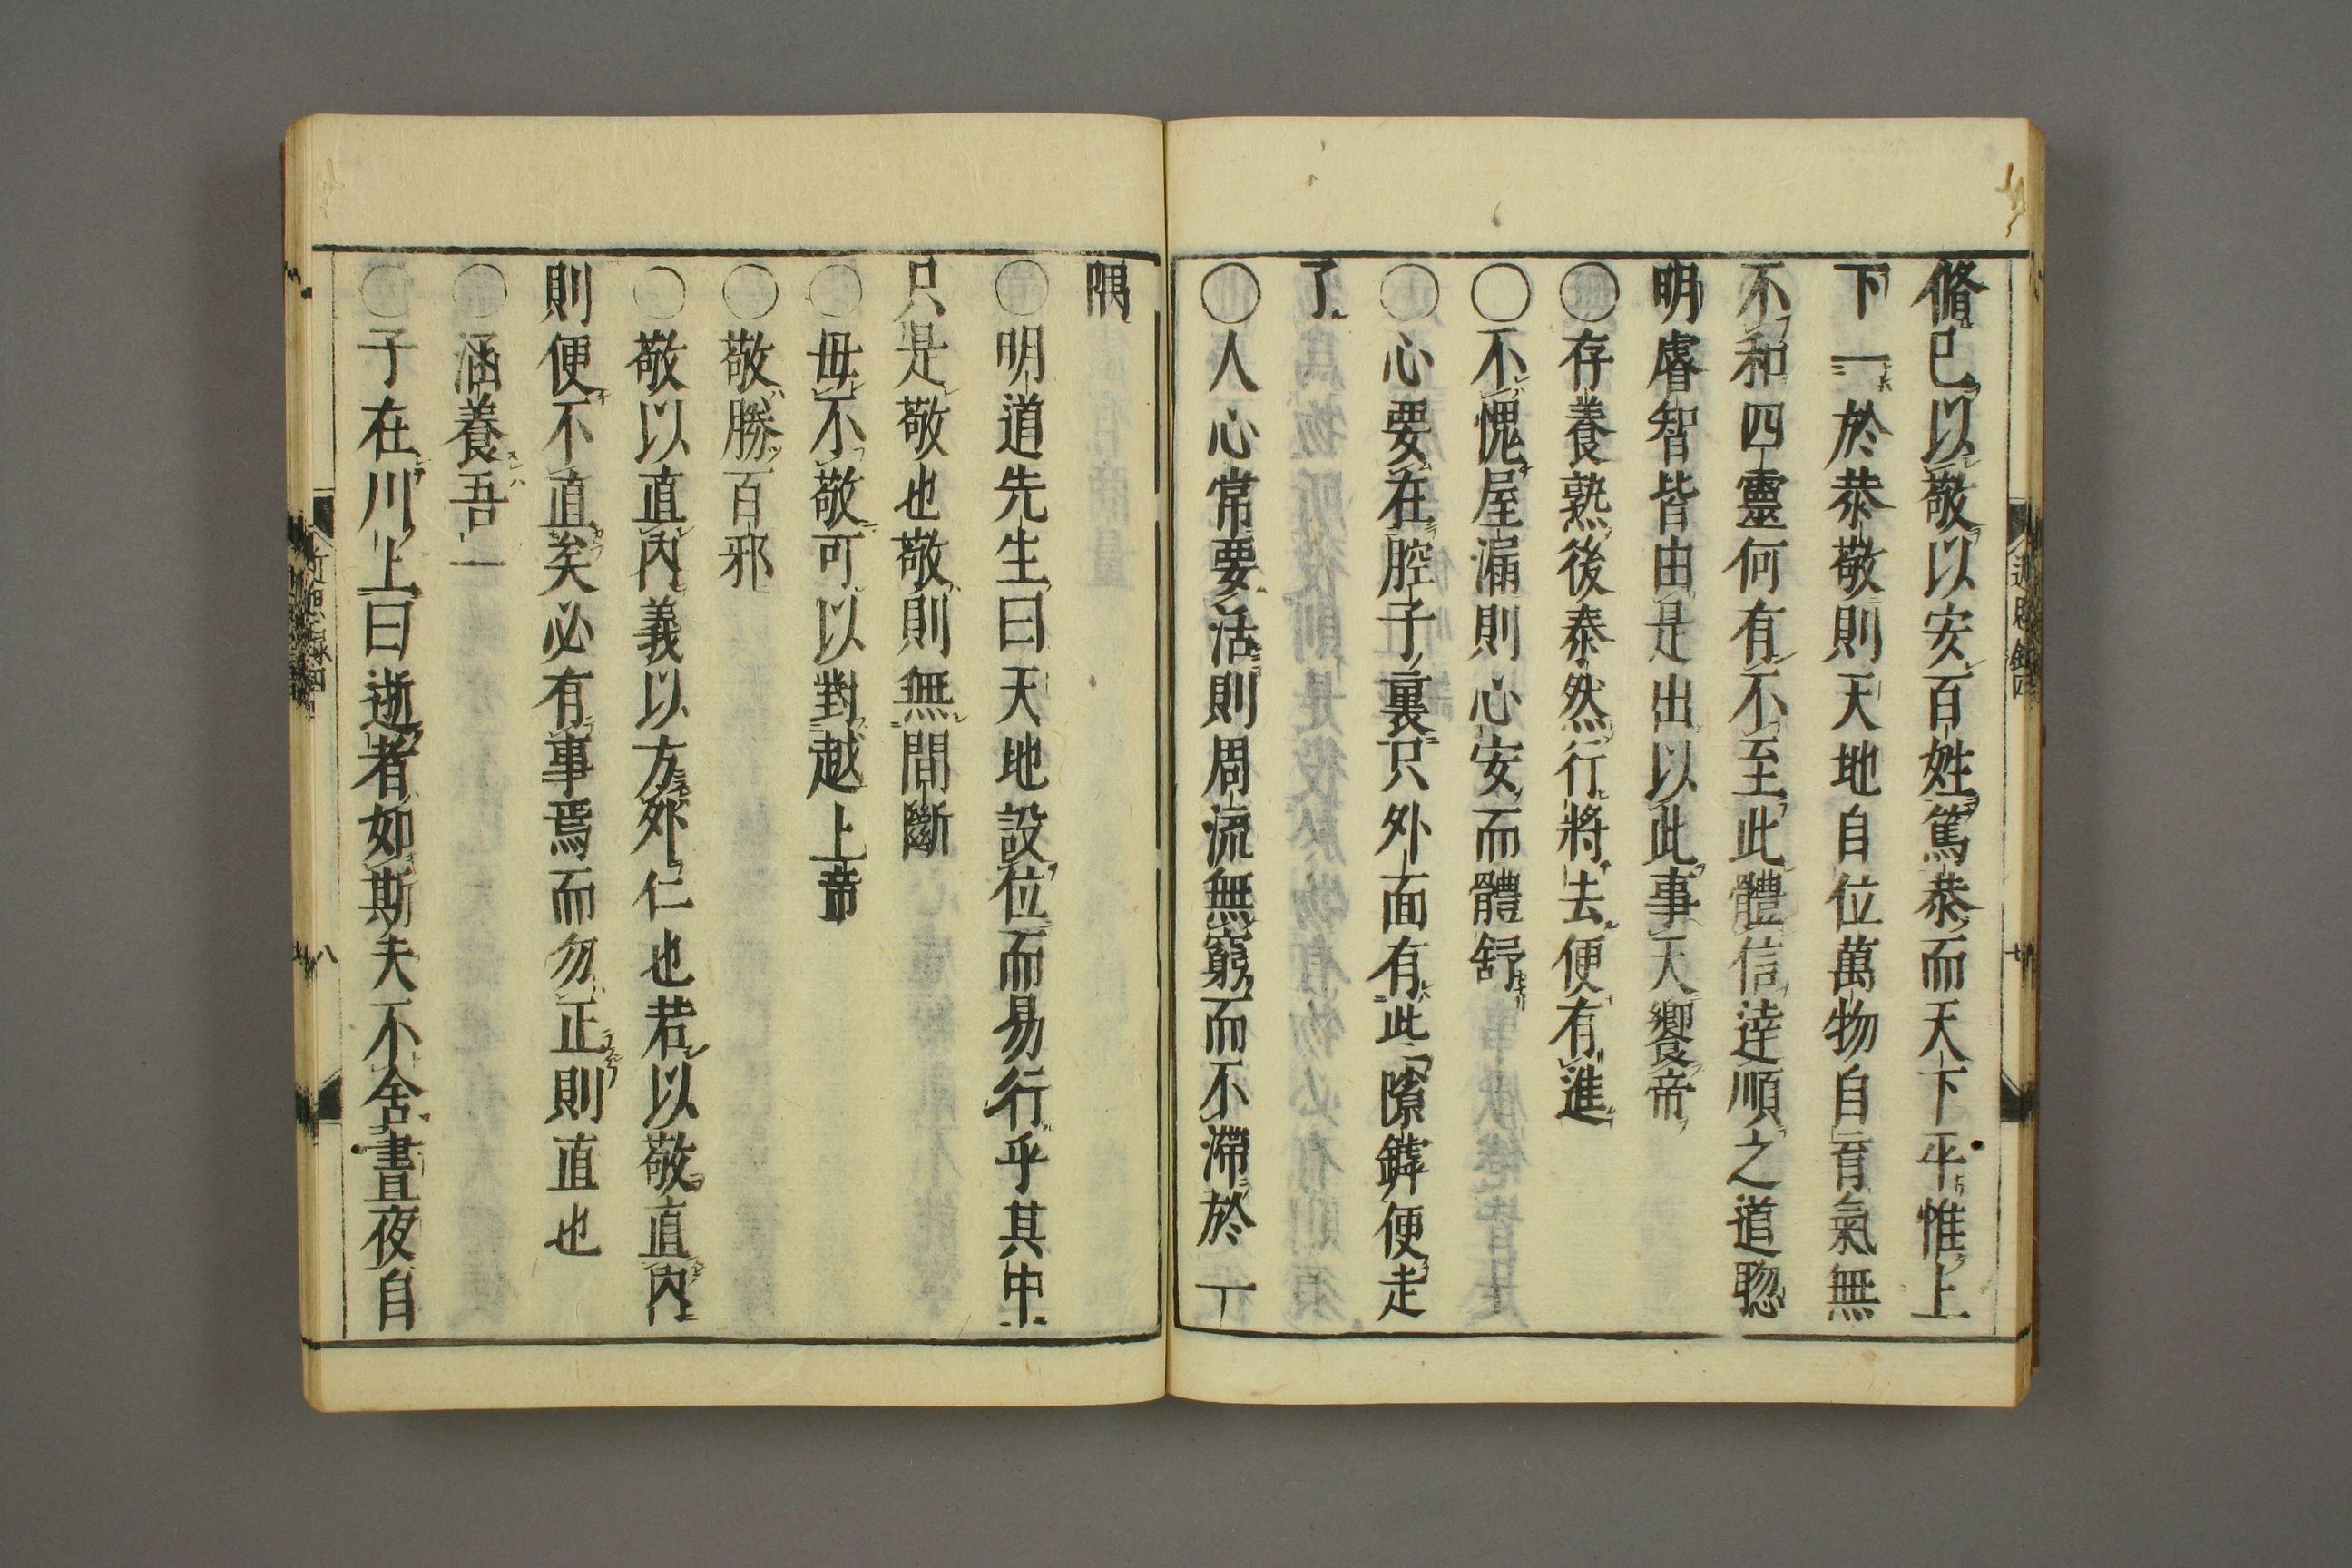 脩已以敬以安百姓篤恭而天下平惟上
下一於恭敬則天地自位萬物自育氣無
不和四靈何有不至此體信達順之道聰
明睿智皆由是出以此事天饗帝
〇存養熟後泰然行將去便有進
〇不愧屋漏則心安而體舒
〇心要在腔子裏只外面有此隙罅便走
了
〇人心常要活則周流無窮而不滯於一
隅
〇明道先生曰天地設位而易行乎其中
只是敬也敬則無間斷
〇毋不敬可以對越上帝
〇敬勝百邪
〇敬以直內義以方外仁也若以敬直內
則便不直矣必有事焉而勿正則直也
〇涵養吾一
〇子在川上曰逝者如斯夫不舍晝夜自
近思録四
八